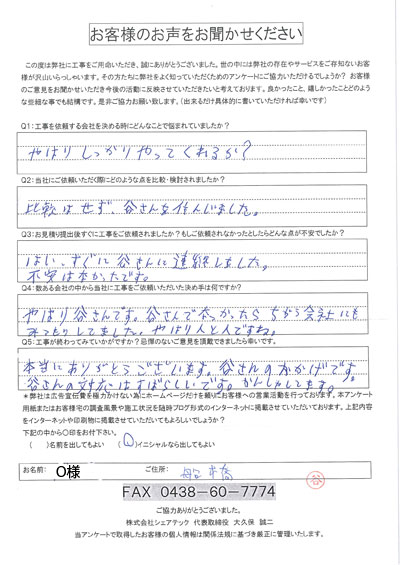 お客様のお声をお聞かせください
この度は弊社に工事をご用命いただき、誠にありがとうございました。世の中には弊社の存在やサービスをご存知ないお客
様が沢山いらっしゃいます。その方たちに弊社をよく知っていただくためのアンケートにご協力いただけるでしょうか？ お客様
のご意見をお聞かせいただき今後の活動に反映させていただきたいと考えております。良かったこと、嬉しかったことどのよう
な些細な事でも結構です。是非ご協力お願い致します。（出来るだけ具体的に書いていただければ幸いです）
Q1：工事を依頼する会社を決める時にどんなことで悩まれていましたか？
やはりしっかりやってくれるか？
Q2：当社にご依頼いただく際にどのような点を比較・検討されましたか？
比較はせず、谷さんを信じました。
Q3：お見積り提出後すぐに工事をご依頼されましたか？もしご依頼されなかったとしたらどんな点が不安でしたか？
はい、すぐに谷さんに連絡しました。
不安は本かったです。
Q4：数ある会社の中から当社に工事をご依頼いただいた決め手は何ですか？
やはり谷さんです。谷さんで本かったら ちがう会社にも
みつもりしてました。やはり人と人ですね。
Q5：工事が終わってみていかがですか？忌憚のないご意見を頂戴できましたら幸いです。
本当にありがとうございます。谷さんのおかげです。
谷さんの対応はすばらしいです。かんしゃしてます。
＊弊社は広告宣伝費を極力かけない為にホームページだけを頼りにお客様への営業活動を行っております。本アンケート
用紙またはお客様宅の調査風景や施工状況を随時ブログ形式のインターネットに掲載させていただいております。上記内容
をインターネットや印刷物に掲載させていただいてもよろしいでしょうか？
下記の中から〇印をお付下さい。
（ ）名前を出してもよい （〇）イニシャルなら出してもよい
お名前： O様 ご住所： 船橋
谷
FAX 0438-60-7774
ご協力ありがとうございました。
株式会社シェアテック 代表取締役 大久保 誠二
当アンケートで取得したお客様の個人情報は関係法規に基づき厳正に管理いたします。